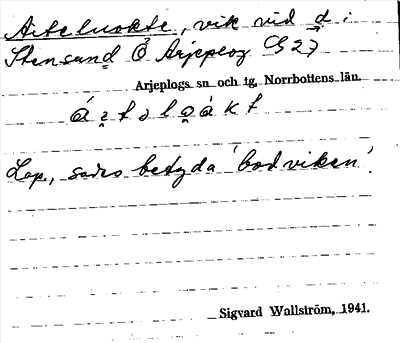 Aiteluokte, vik vid d:
Stensund Ö Arjeplog G27
Arjeplogs sn och tg, Norrbottens län.
Lap., säges betyda 'bodviken'.
Sigvard Wallström, 1941.